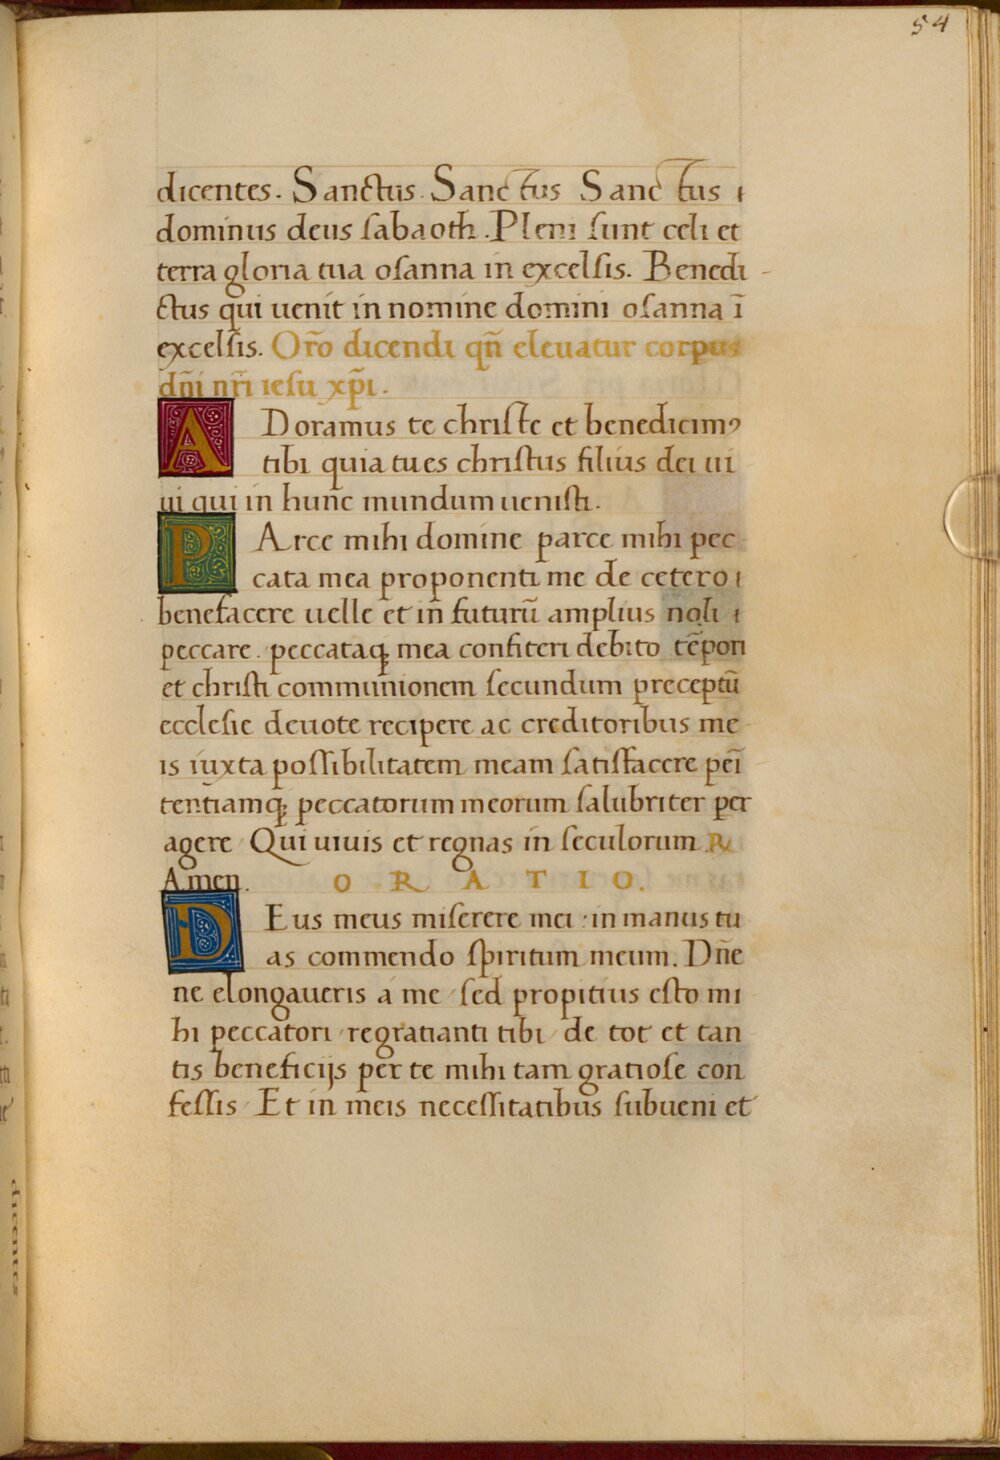 54
dicentes. Sanctus. Sanctus Sanctus
dominus deus sabaoth. Pleni sunt celi et
terra gloria tua osanna in excelsis. Benedi-
ctus qui uenit in nomine domini osanna ī
excelsis. Orō dicendi qn̄ eleuatur corpus
dn̄i nr̄i iesu xp̄i.
ADoramus te christe et benedicimꝰ
tibi quia tu es christus filius dei ui
ui qui in hunc mundum uenisti.
PArce mihi domine parce mihi pec
cata mea proponenti me de cetero
benefacere uelle et in̄ futurū amplius noli
peccare. peccataqꝫ mea confiteri debito tēpori
et christi communionem secundum preceptū
ecclesie deuote recipere ac creditoribus me
is iuxta possibilitatem meam satisfacere pēi
tentiamqꝫ peccatorum meorum salubriter per
agere Qui uiuis et regnas in seculorum R
Amen. ORATIO.
DEus meus miserere mei in manus tu
as commendo spiritum meum. Dn̄e
ne elongaueris a me sed propitius esto mi
hi peccatori regratianti tibi de tot et tan
tis beneficijs per te mihi tam gratiose con
fessis Et in meis necessitatibus subueni et